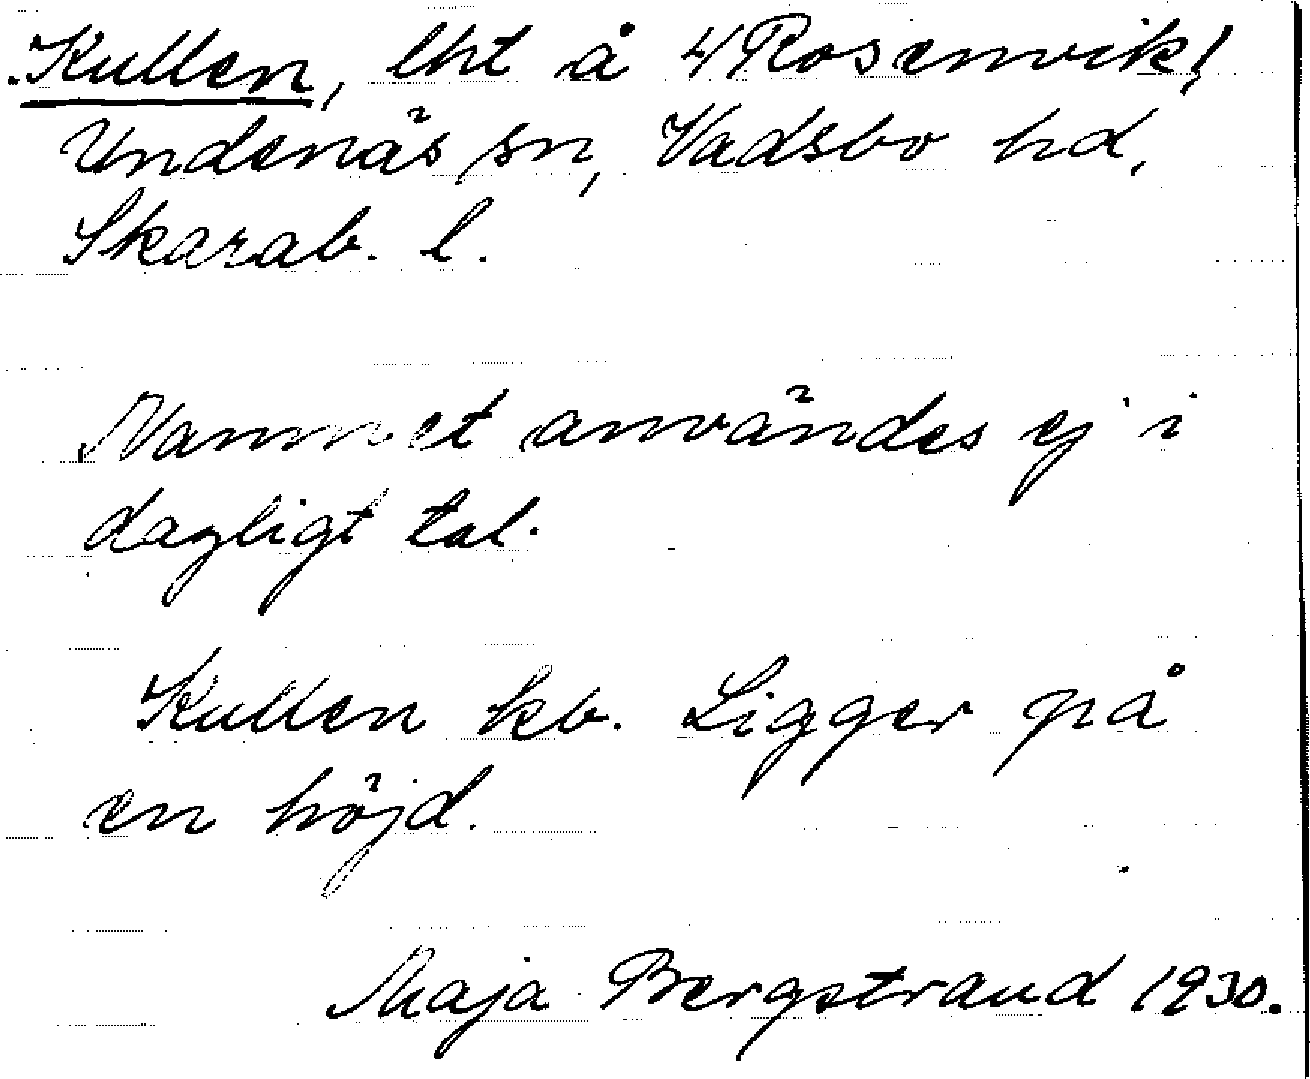 Kullen, lht å 4 Rosenvik,
Undenäs sn, Vadsbo hd,
Skarab. l.
Namnet användes ej i
dagligt tal.
Kullen kb. Ligger på
en höjd.
Maja Bergstrand 1930.